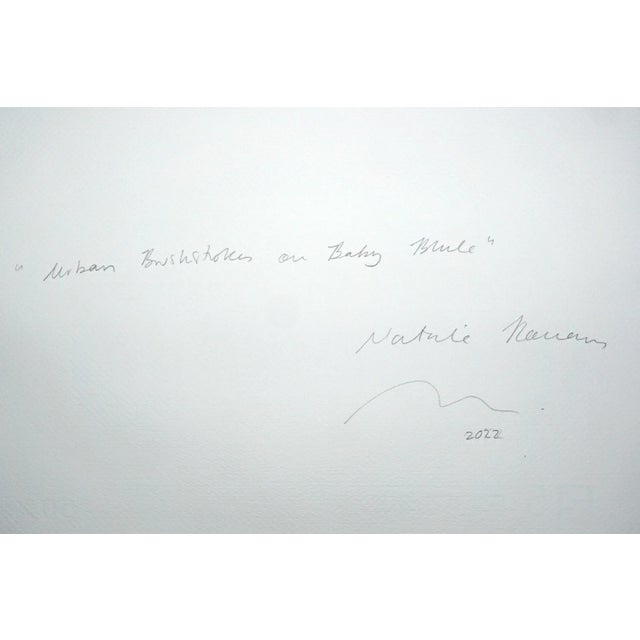 "Urban Brushstokes on Baby Blue"
Natalie
2022